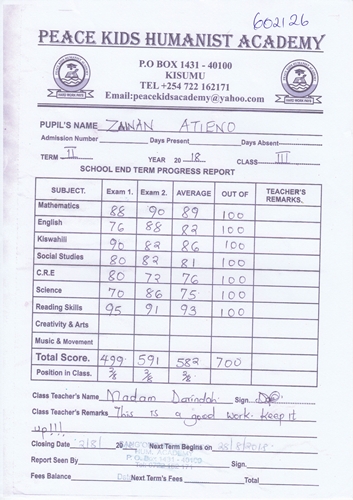 602126
PEACE KIDS HUMANIST ACADEMY
P.O BOX 1431 - 40100
KISUMU
TEL +254 722 162171
Email:peacekidsacademy@yahoo.com
PUPIL'S NAME ZAINAN ATIENO
Admission Number Days Present Days Absent
TERM II YEAR 20 18 CLASS III
SCHOOL END TERM PROGRESS REPORT
SUBJECT. Exam 1. Exam 2. AVERAGE OUT OF TEACHER'S REMARKS.
Mathematics 88 90 89 100
English 76 88 82 100
Kiswahili 90 82 86 100
Social Studies 80 82 81 100
C.R.E 80 72 76 100
Science 70 86 75 100
Reading Skills 95 91 93 100
Creativity & Arts
Music & Movement
Total Score. 499 591 582 700
Position in Class. 3/8 3/8 3/8
Class Teacher's Name Madam Sign.
Class Teacher's Remarks This is a good work. keep it
up!!!
Closing Date 2/8/ 20 Next Term Begins on
Report Seen By Sign.
Fees Balance Next Term's Fees Total